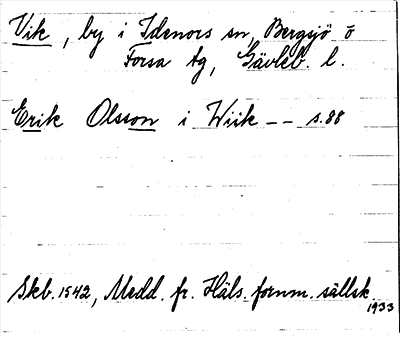 Vik, by i Idenors sn, Bergsjö o
Forsa tg, Gävleb. l.
Erik Olsson i Wiik -- s. 88
Skb. 1542, Medd. fr. Häls. fornm. sällsk.
1933